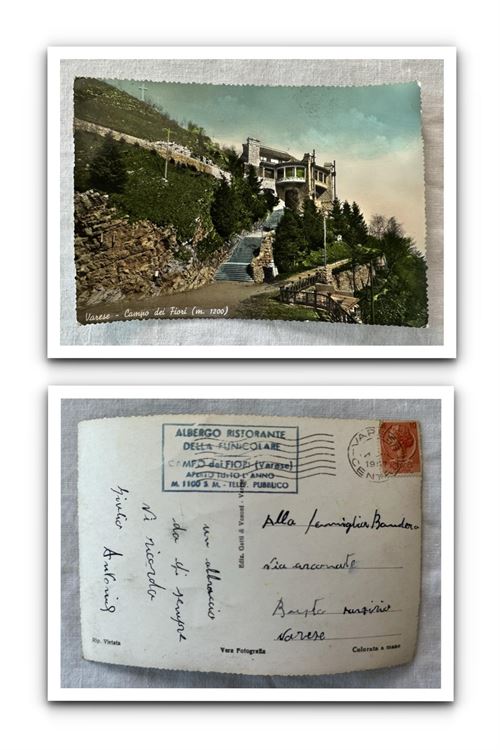 Varese - Campo dei Fiori (m. 1200)
ALBERGO RISTORANTE
DELLA FUNICOLARE
CAMPO dei FIORI (Varese)
APERTO TUTTO L'ANNO
M. 1100 S M. - TELEF. PUBBLICO
VARESE
CENTRO
un abbraccio
da chi sempre
vi ricorda
Giulio Antonio
Ediz. Gatti &
Alla famiglia Bandera
via arconate
Busto arsizio
Varese
Rip. Vietata
Vera Fotografia
Colorata a mano